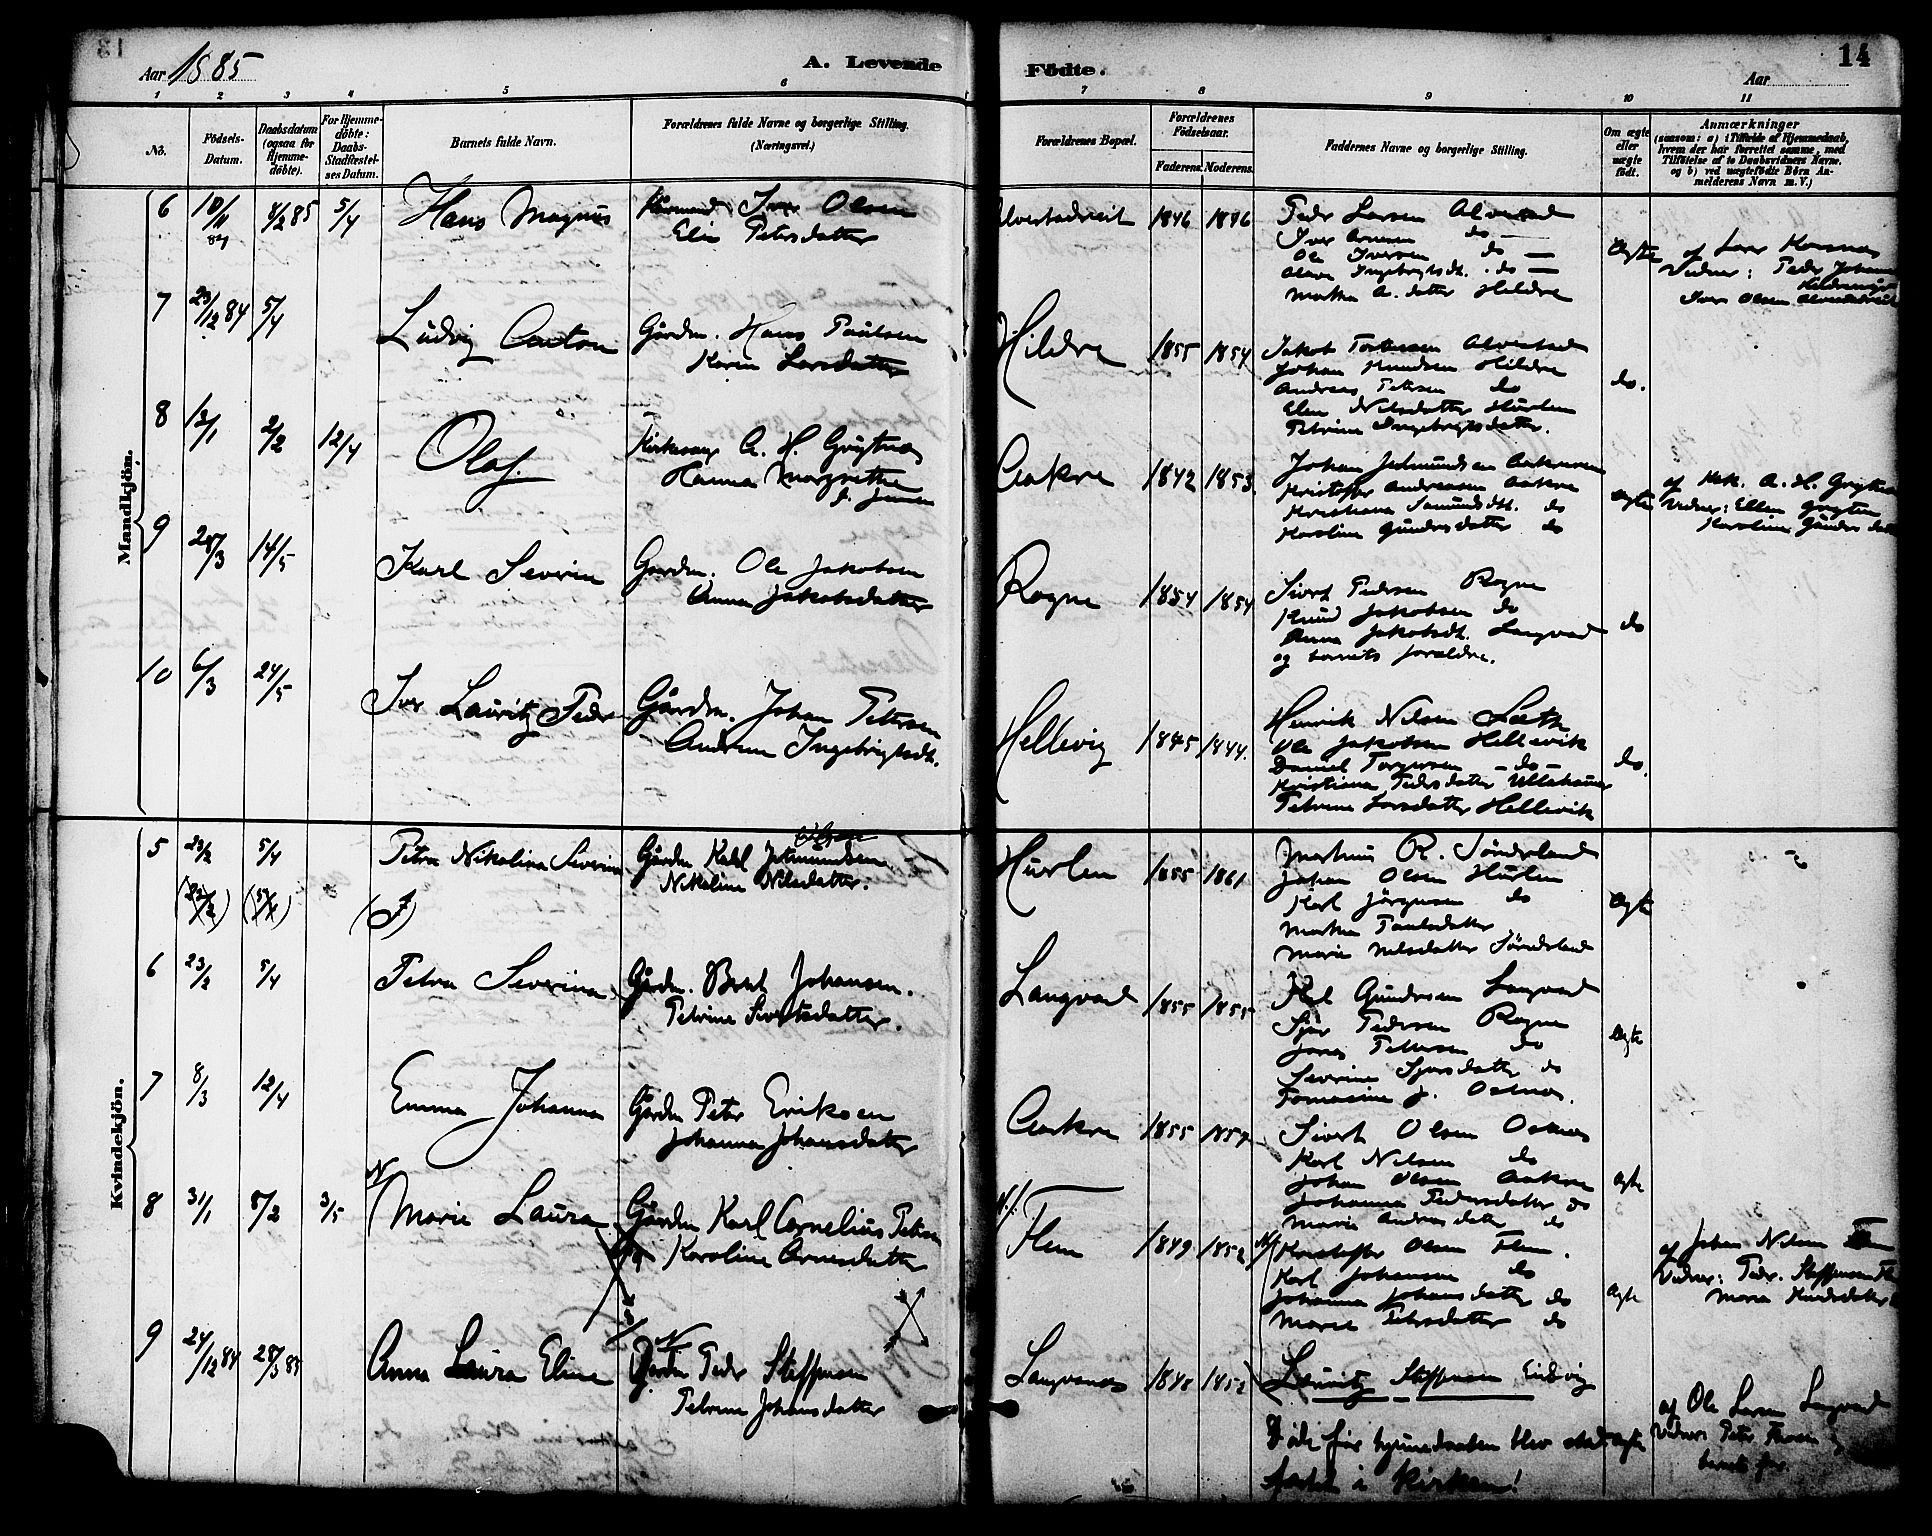 13
Aar 1885
A. Levende
Födte.
14
Aar
1 2 3 4 5 6 7 8 9 10 11
No.
Födsels-Datum.
Daabsdatum (ogsaa for Hjemme-döbte).
For Hjemme-döbte: Daabs-Stadfæstel-ses Datum.
Barnets fulde Navn.
Forældrenes fulde Navne og borgerlige Stilling. (Næringsvei.)
Forældrenes Bopæl.
Forældrenes Födselsaar.
Faderens. Moderens.
Faddernes Navne og borgerlige Stilling.
Om ægte eller uægte födt.
Anmærkninger
(saasom: a) i Tilfælde af Hjemmedaab, hvem der har forrettet samme, med Tilföielse af to Daabsvidners Navne. og b) ved uægtefödte Börn An-melderens Navn m. V.)
Mandkjön.
6 18/11 84 8/2 85 5/4 Hans Magnus
Iver Olsen
Elin Petersdatter
1846 1846
Peder Larsen Alvestad
Iver Arnesen do
Ole Iversen do
Olave Ingebrigtsdt. do
Marthe A. datter Hildre
Ægte
Vidner: Peder Johans
Iver Olsen Alvestadvik
7 23/12 84 5/4 Ludvig Anton
Gårdm. Hans Paulsen
Karen Larsdatter
Hildre 1855 1854
Jakob Alvestad
Johan Knudsen Hildre
Andreas Petersen do
Elen Nilsdatter Hurlen
Petrine Ingebrigtsdatter.
do.
8 12/1 2/2 12/4 Olaf.
Kirkesang A. H. Grÿtnes
Hanna Margrethe
f. Jensen
Aakre 1842 1853.
Johan
Kristoffer Andreassen Aakre
Kristiane do
Karoline Gundersdatter do
Ægte
af A. H. Grytnes
Vidner: Ellen Grytnes
Karoline Gundersdatter
9 28/3 14/5 Karl Severin
Gardm. Ole Jakobsen
Anna Jakobsdatter
Rogne 1854 1854.
Sivert Pedersen Rogne
Knud Jakobsen do
Anna Jakobsdt. Langvad
og barnets forældre.
do
10 6/3 24/5 Iver Lauritz Peder
Gårdm. Johan Petersen
Andrine Ingebrigtsdt.
Hellevig 1845 1844.
Henrik Nilsen Sæth
Ole Jakobsen Hellevik
Daniel Torgersen - do -
Kristiane Pedersdatter Ullahaug
Petrine Larsdatter Hellevik
do.
Kvindekjön.
5 23/2 5/4 Petra Nikolina Severine
Gårdm Karl
Nikoline Nilsdatter.
Hurlen 1855 1861
Martinus R. Sönderland
Johan Olsen Hurlen
Karl Jörgensen do
Marthe Paulsdatter
Marie Nilsdatter Sönderland
Ægte
(23/2) (5/4) (P)
6 23/2 5/4 Petra Severina
Gårdm. Bernt Johansen.
Petrine Sivertsdatter.
Langvad 1855 1855
Karl Gundersen Langvad
Sjur Pedersen Rogne
Jonas Pettersen do
Severine Sjursdatter do
Tomasine J. Østnes.
Ægte
7 8/3 12/4 Emma Johanna
Gårdm Peter Eriksen
Johanna Johansdatter
Aakre 1855 1857
Sivert Olsen Østnes
Karl Nilsen do
Johan Olsen Aakre
Johanna Pedersdatter do
Marie Andersdatter do
Ægte
8 31/1 8/2 3/5 Marie Laura
Gårdm Karl Cornelius Peters
Karoline Arnesdatter
Flem 1849 1852
Kristoffer Olsen Flem.
Karl Johansen do
Johanna Johansdatter do
Marie Petersdatter do
Ægte
af Johan Nilsen Flem
Vidner: Peder Steffensen
Marie Knudsdatter
9 24/12 84 28/3 85 Anna Laura Eline
Gårdm Peder Steffensen
Petrine Johansdatter
Langvanes 1848 1852
Lauritz Steffensen Eidsvig
Döde før hjemmedaaben blev stad-
fæstet i Kirken!
Ægte
af Ole Larsen Langvad
Vidner: Peter
barnets far.